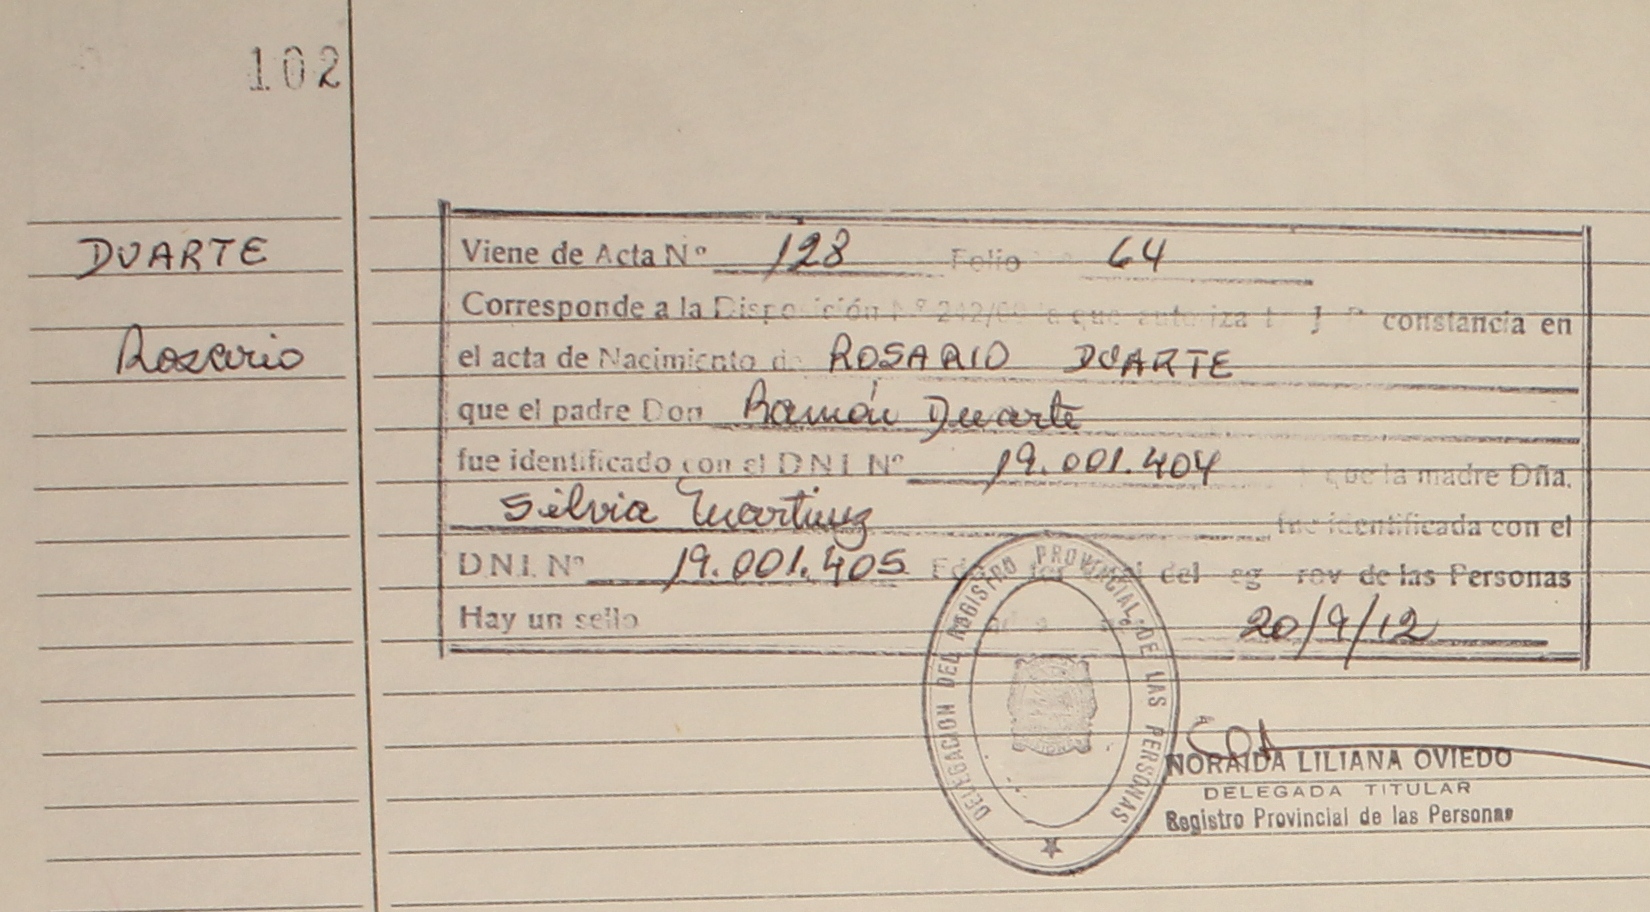 102
DUARTE
Rosario
Viene de Acta Nº 128 Folio 64
Corresponde a la constancia en
el acta de Nacimiento de ROSARIO DUARTE
que el padre Don Ramón Duarte
fue identificado con el D N I Nº 19.001.404 que la madre Dña.
Silvia Martinez fue identificada con el
D N I. Nº 19.001.405 del de las Personas
Hay un sello 20/9/12
DELEGACION DEL REGISTRO PROVINCIAL DE LAS PERSONAS
NORAIDA LILIANA OVIEDO
DELEGADA TITULAR
Registro Provincial de las Personas